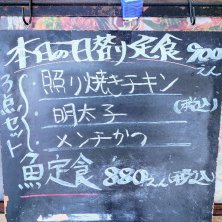 本日の日替り定食 900えん
3点セット
・照り焼きチキン
・明太子 (税込)
・メンチかつ
魚定食 880えん(税込)